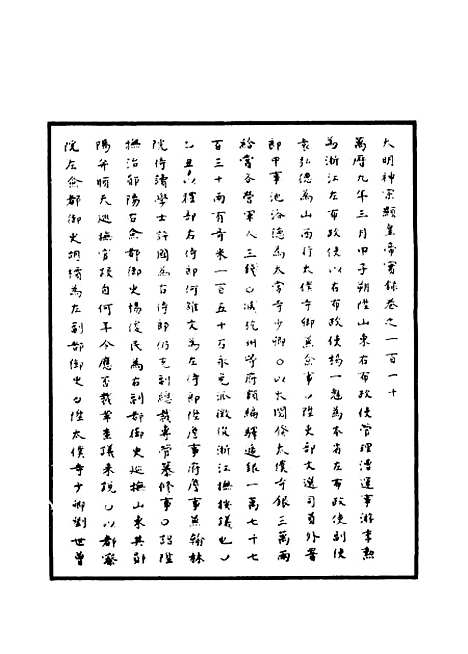 大明神宗顯皇帝實錄卷之一百一十
萬曆九年三月甲子朔陞山東右布政使管理漕運事游季勲
為浙江左布政使以右布政使楊一魁為本省左布政使副使
袁弘德為山西行太僕寺卿兼僉事○陞吏部文選司員外署
郎中事池浴德為太常寺少卿○以大閱俻太僕寺銀三萬兩
給賞各營軍人三錢○減杭州等府額編驛遞銀一萬七千七
百三十兩有奇米一百五十石永免派徵從浙江撫按議也○
乙丑以禮部右侍郎何雒文為左侍郎陞詹事府詹事兼翰林
院侍讀學士許國為右侍郎仍充副總裁專管纂修事○詔陞
撫治鄖陽右僉都御史楊俊民為右副都御史巡撫山東其鄖
陽并順天巡撫官後自何年今應否裁革查議来說○以都察
院左僉都御史胡檟為左副都御史○陞太僕寺少卿劉世曾